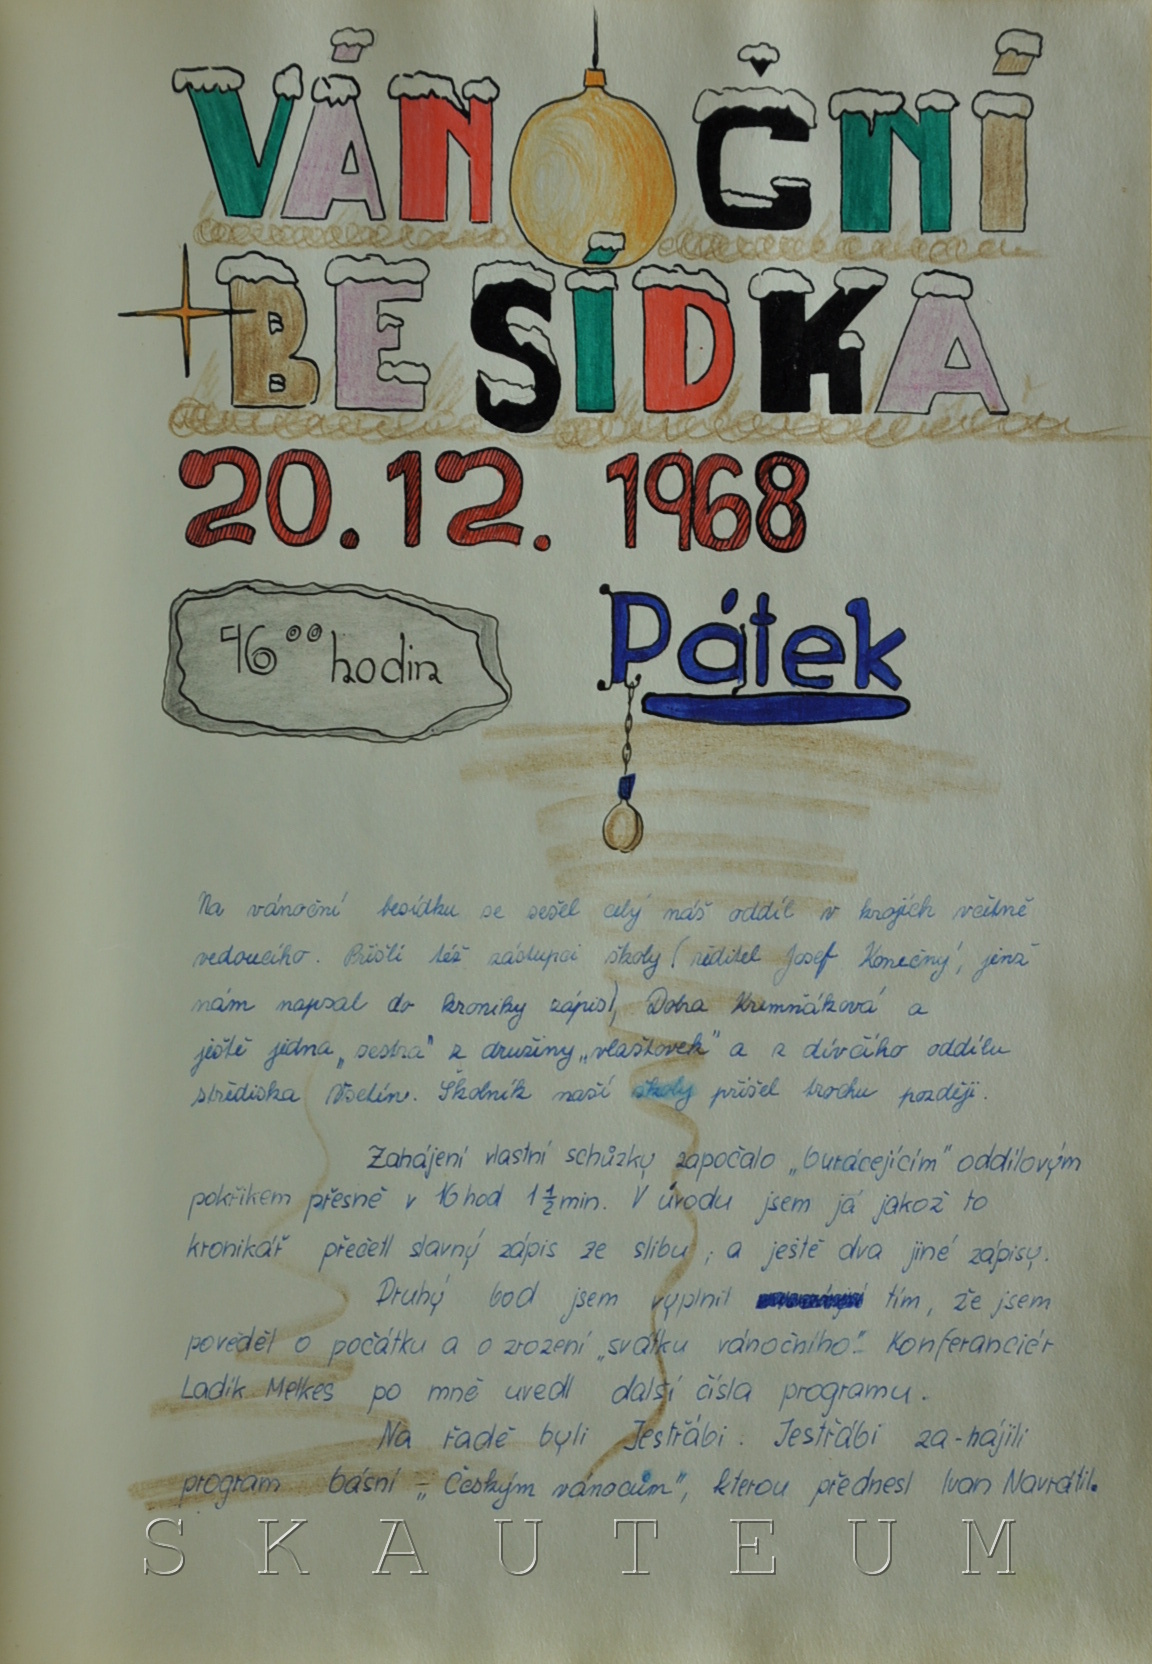 VÁNOČNÍ
BESÍDKA
20. 12. 1968
16⁰⁰ hodin
Pátek
Na vánoční besídku se sešel celý náš oddíl v krojích včetně
vedoucího. Přišli též zástupci školy (ředitel Josef Konečný, jenž
nám napsal do kroniky zápis), Dobra Kremňáková a
ještě jedna „sestra" z družiny „vlaštovek" a z dívčího oddílu
střediska Vsetín. Školník naší školy přišel trochu později.
Zahájení vlastní schůzky započalo „burácejícím" oddílovým
pokřikem přesně v 16 hod 1 ½ min. V úvodu jsem já jakož to
kronikář přečetl slavný zápis ze slibu, a ještě dva jiné zápisy.
Druhý bod jsem vyplnil tím, že jsem
pověděl o počátku a o zrození „svátku vánočního". Konferanciér
Ladík Melkes po mně uvedl další čísla programu.
Na řadě byli Jestřábi. Jestřábi za-hájili
program básní - „Českým vánocům", kterou přednesl Ivan Navrátil.
SKAUTEUM